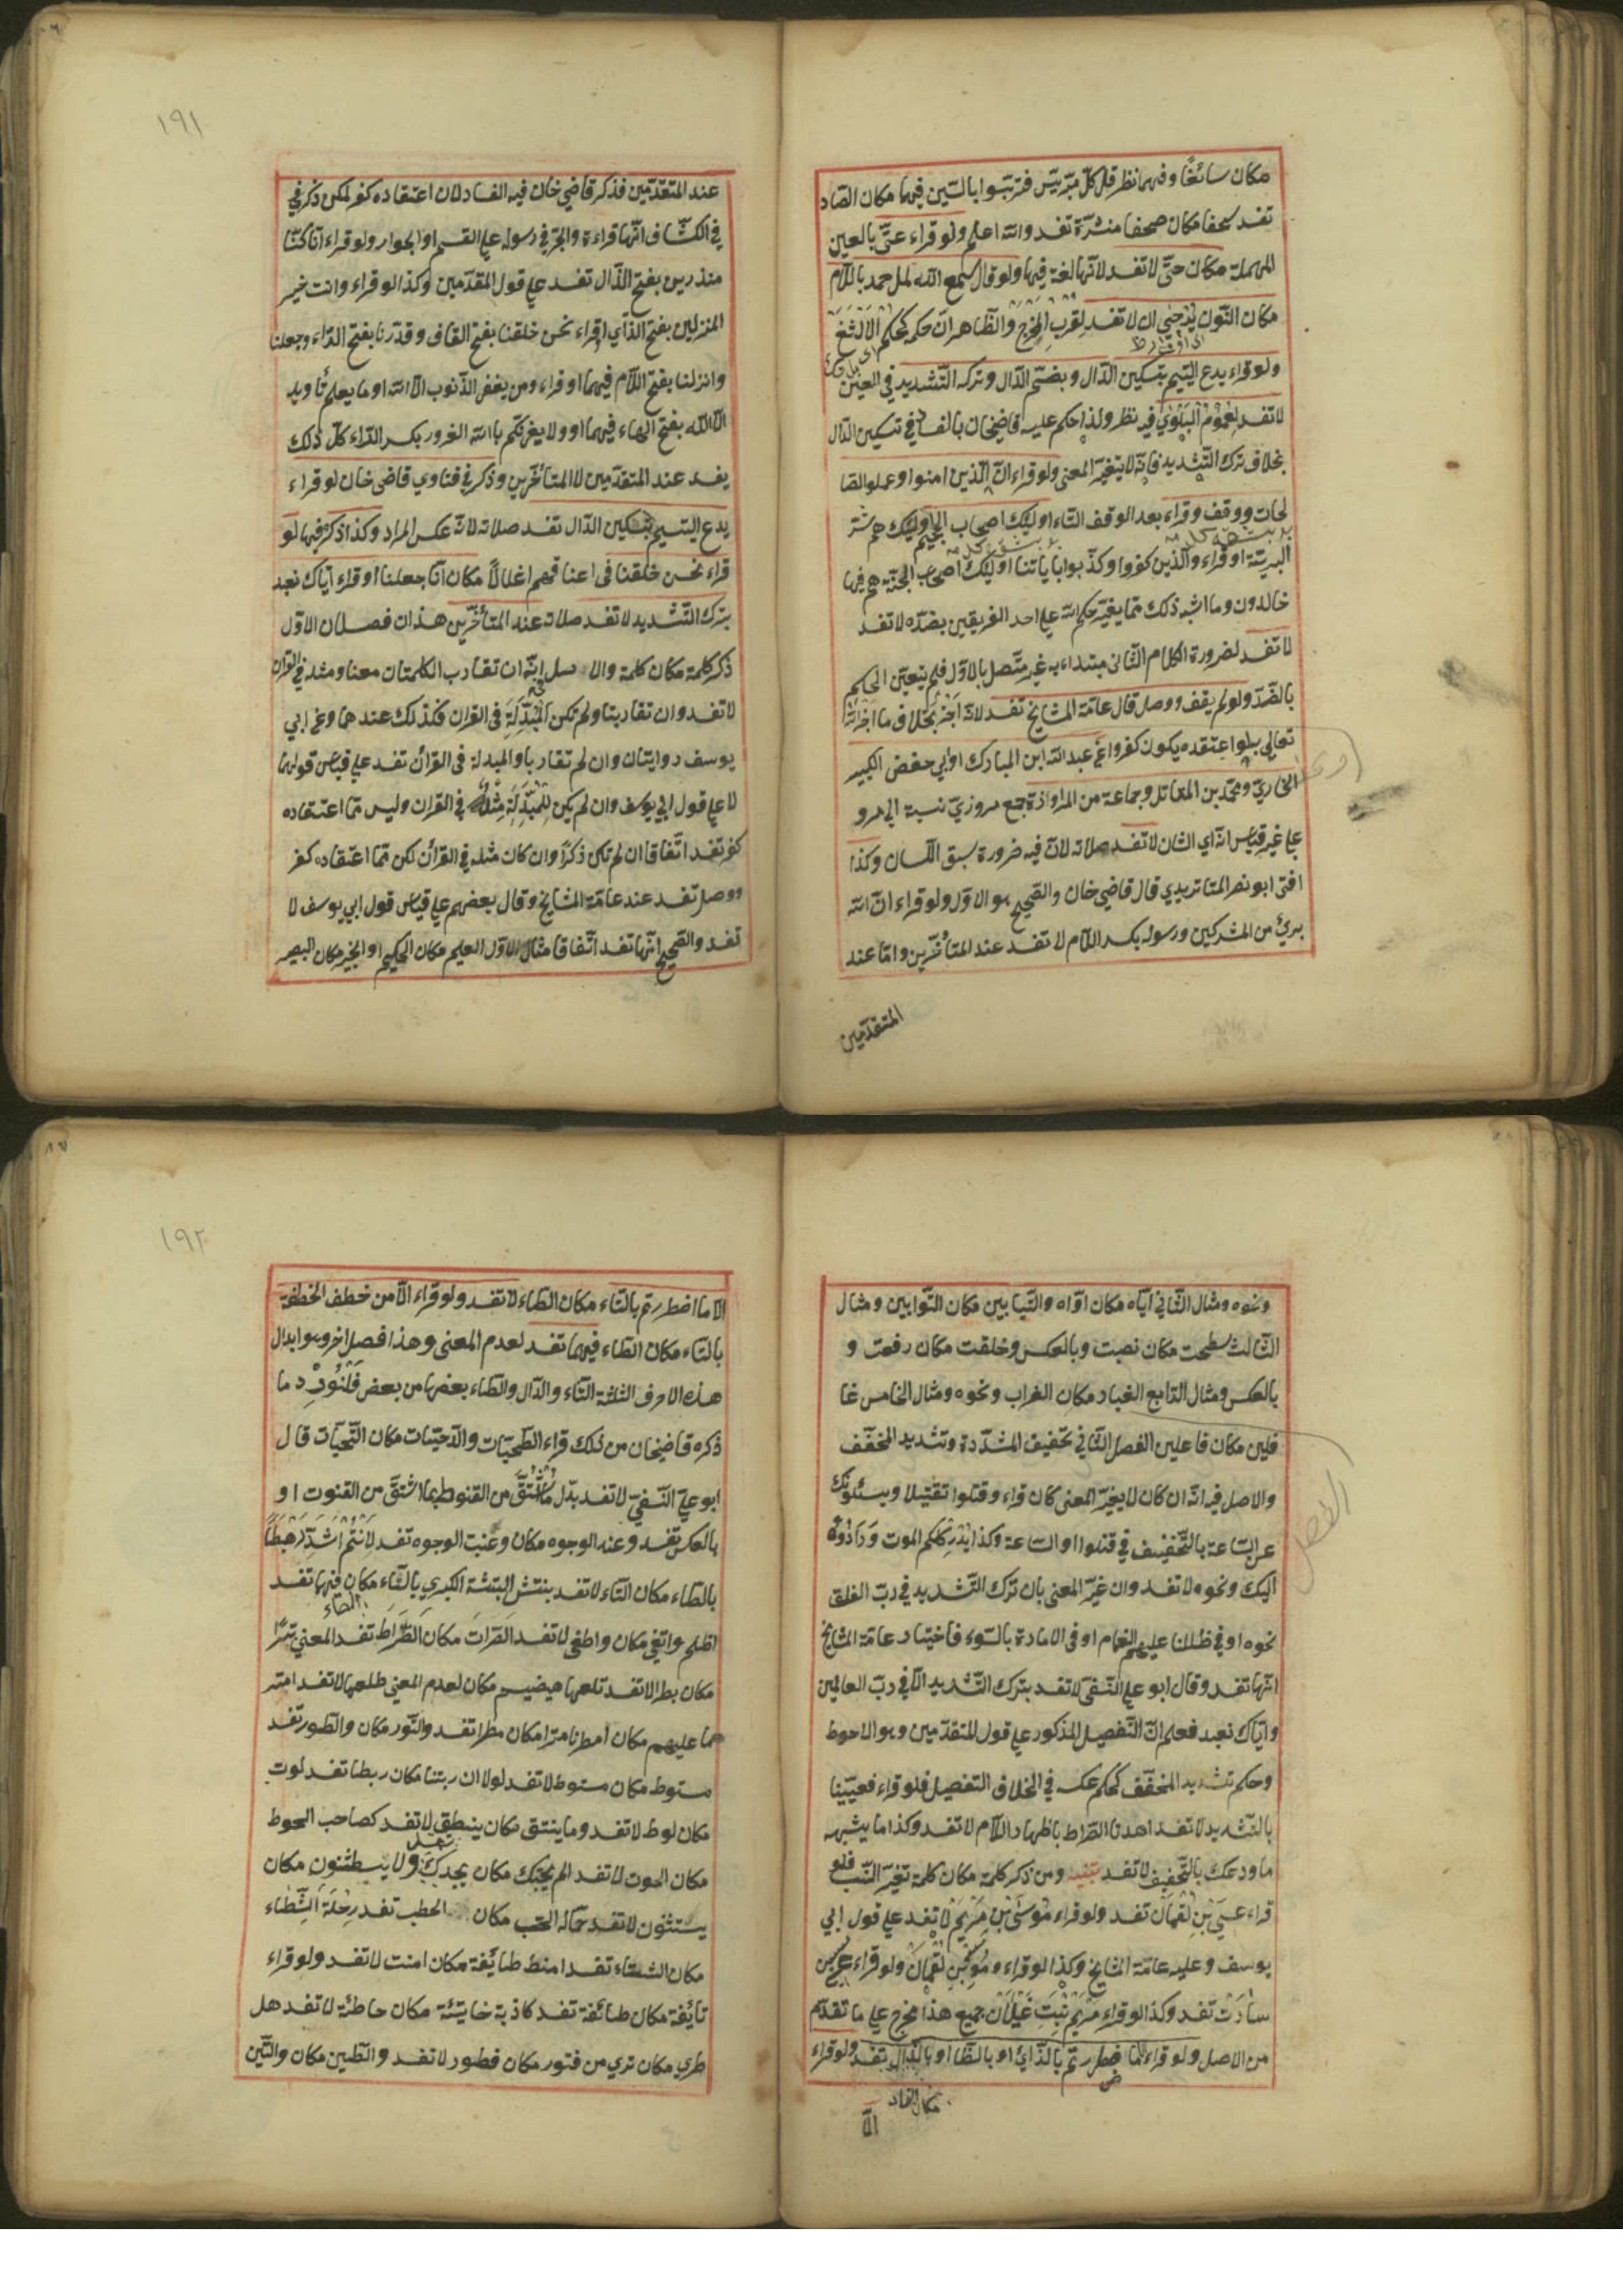 مكان سائغا وفيهما نظر قل كل متربّص فتربّسوا بالسّين فيها مكان الصّاد
تفسد سحفا مكان صحفا منشّرة تفسد والله اعلم ولو قراء عتّى بالعين
المهملة مكان حتّى لا تفسد لانّها لغة فيها ولو قال سمع الله لمل حمده باللّام
مكان النّون يُرْجَى ان لا تفسد لِقُرْبِ المخرج والظّاهر ان حكمه كحكم الاَلْثَغ
ولو قراء يدع اليتيم بتسكين الدّال وبضمّ الدّال وترك التّشديد في العين
لا تفسد لِعُمُوْمِ الْبَلْوَي فيه نظر ولذا حكم عليه قاضيخان بالفساد في تسكين الدّال
بخلاف ترك التّشديد فانّه لا يتغيّر المعنى ولو قراء انّ الّذين امنوا وعملوا الصّا
لحات ووقف وقراء بعد الوقف التّاء اوليك اصحاب الجحيم اوليك هم شرّ
البريّة او قراء والّذين كفروا وكذّبوا باياتنا اوليك اصحاب الجنّة هم فيها
خالدون وما اشبه ذلك ممّا يغيّر حكم الله على احد الفريقين بضدّه لا تفسد
لا تفسد لضرورة الكلام الثّانى مبتداء به غير متّصل بالاوّل فلم يتعيّن الحكم
بالضّدّ ولو لم يقف ووصل قال عامّة المشايخ تفسد لانّه اخبر بخلاف ما اخبر الله
تعالى به لو اعتقده يكون كفرا وعن عبد الله ابن المبارك وابي حفص الكبير
البخاريّ ومحمّد بن المقاتل وجماعة من المراوذة جمع مروزيّ نسبة الى مرو
على غير قياس انّه اي الشان لا تفسد صلاته لانّ فيه ضرورة سبق اللّسان وكذا
افتى ابو نصر الماتريدي قال قاضي خان والصّحيح هو الاوّل ولو قراء انّ الله
بريئ من المشركين ورسوله بكسر اللّام لا تفسد عند المتأخّرين وامّا عند
المتقدّمين
١٩١
عند المتقدّمين فذكر قاضي خان فيه الفساد لان اعتقاده كفر لكن ذكر في
في الكشّاف انّها قراءة والجرّ في رسوله على القسم او الجوار ولو قراء انّا كنّا
منذرين بفتح الذّال تفسد على قول المتقدّمين وكذا لو قراء وانت خير
المنزلين بفتح الزّاي او قراء نحن خلقنا بفتح القاف وقدّرنا بفتح الرّاء وجعلنا
وانزلنا بفتح اللّام فيهما او قراء ومن يغفر الذّنوب الّا الله او ما يعلم تأويله
الّا الله بفتح الهاء فيهما او ولا يغرّنّكم بالله الغرور بكسر الرّاء كلّ ذلك
يفسد عند المتقدّمين لا المتأخّرين وذكر في فتاوي قاضى خان لو قراء
يدع اليتيم بتسكين الدّال تفسد صلاته لانّه عكس المراد وكذا ذكر فيها لو
قراء نحن خلقنا فى اعناقهم اغلالاً مكان انّا جعلنا او قراء ايّاك نعبد
بترك التّشديد لا تفسد صلاته عند المتأخّرين هذان فصلان الاوّل
ذكر كلمة مكان كلمة والاصل انّه ان تقارب الكلمتان معنا ومثله في القران
لا تفسد وان تقاربتا ولم تكن الْمُبْدَلَة فى القران فكذلك عندهما وعن ابي
يوسف روايتان وان لم تقاربا والمبدلة فى القرأن تفسد على قياس قولهما
لا على قول ابي يوسف وان لم يكن لِلْمُبْدَلَةِ مِثْلٌ في القران وليس ممّا اعتقاده
كفر تفسد اتّفاقا ان لم تكن ذكرا وان كان مثله في القرأن لكن ممّا اعتقاده كفر
ووصل تفسد عند عامّة المشايخ وقال بعضهم على قياس قول ابي يوسف لا
تفسد والصّحيح انّها تفسد اتّفاقا مثال الاوّل العليم مكان الحكيم او الخبير مكان البصير
ونحوه ومثال الثّاني ايّاه مكان اوّاه والتّيّابين مكان التّوّابين ومثال
الثّالث سطحت مكان نصبت وبالعكس وخلقت مكان رفعت و
بالعكس ومثال الرّابع الغبار مكان الغراب ونحوه ومثال الخامس غا
فلين مكان فاعلين الفصل الثّاني تخفيف المشدّدة وتشديد المخفّف
والاصل فيه انّه ان كان لا يغيّر المعنى كان قراء وقتلوا تقتيلا ويسئلونك
عن السّاعة بالتّخفيف في قتلوا او السّاعة وكذا يُدْرِكْكم الموت وَرَادُوهُ
اليك ونحوه لا تفسد وان غيّر المعنى بان ترك التّشديد في ربّ الفلق
نحوه او في ظلّلنا عليهم الغمام او فى الامارة بالسّوء فاختيار عامّة المشايخ
انّها تفسد وقال ابو علي النّسفىّ لا تفسد بترك التّشديد الّا في ربّ العالمين
وايّاك نعبد فعلم انّ التّفصيل المذكور على قول المتقدّمين وهو الاحوط
وحكم تشديد المخفّف كحكم عكسه في الخلاف التفصيل فلو قراء فعيّينا
بالتّشديد لا تفسد اهدنا الصّراط باظهار اللّام لا تفسد وكذا ما يشبهه
ما ودعك بالتّخفيف لا تفسد تنبيه ومن ذكر كلمة مكان كلمة تغيّر النّسب فلو
قراء عيسى بْنِ لقمان تفسد ولو قراء مُوْسَى بْنِ مَرْيَمَ لا تفسد على قول ابي
يوسف وعليه عامّة المشايخ وكذا لو قراء ومُوسَى بْنِ لُقْمَان ولو قراء عيسى بن
سارَت تفسد وكذا لو قراء مَرْيَم بْنِتَ غَيْلَانَ جميع هذا مخرج على ما تقدّم
من الاصل ولو قراء الّا ما ضطررتم بالذّاي او بالظّاء او بالدّال تفسد ولو قراء
مكان الضاد
الّا
١٩٢
الّا ما اضطررتم بالتّاء مكان الطّاء لا تفسد ولو قراء الّا من خطف الخطفة
بالتّاء مكان الطّاء فيهما تفسد لعدم المعنى وهذا فصل اخر وهو ابدال
هذه الاحرف الثلثة التّاء والدّال والطّاء بعضها من بعض فَلْنُورِدْ ما
ذكره قاضيخان من ذلك قراء الطّحيّات والدّحيّات مكان التّحيّات قال
ابو عليّ النّسفيّ لا تفسد بدّل ما اشْتُقَّ من القنوط بما اشتقّ من القنوت او
بالعكس تفسد وعند الوجوه مكان وعنت الوجوه تفسد لَأَنْتُمْ اَشَدُّ رَهْبَطًا
بالطّاء مكان التّاء لا تفسد بنتش البتشة الكبري بالتّاء مكان فيها تفسد
الطّاء
اظلم واتغى مكان واطغى لا تفسد الصّرات مكان الصِّرَاط تفسد المعني تترا
مكان بطرا لا تفسد تلعها هيضيم مكان لعدم المعني طلعها لا تفسد امتر
نا عليهم مكان امطرنا مترا مكان مطرا تفسد والتّور مكان والطّور تفسد
مستوط مكان مستوط لا تفسد لولا ان ربتنا مكان ربطنا تفسد لوت
مكان لوط لا تفسد وما ينتق مكان ينطق لا تفسد كصاحب الحوط
مكان الحوت لا تفسد الم يجتك مكان يجدك ولا يسطثنون مكان
يستثنون لا تفسد حمّالة الحتب مكان الحطب تفسد رِحْلَةَ الشِّطَاء
مكان الشتاء تفسد امنط طائفة مكان امنت لا تفسد ولو قراء
تائفة مكان طائفة تفسد كاذبة خاتئة مكان خاطئة لا تفسد هل
طري مكان تري من فتور مكان فطور لا تفسد والطّين مكان والتّين